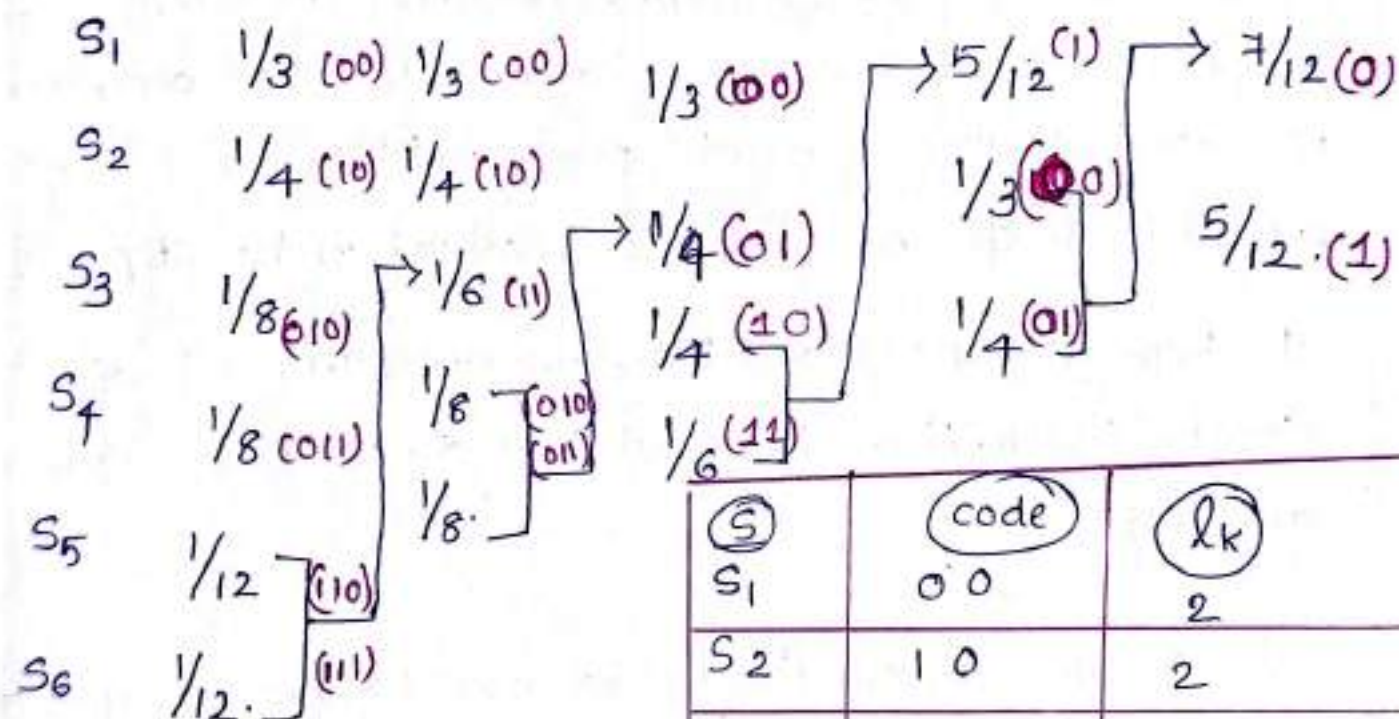 S1 1/3 (00) 1/3 (00) 1/3 (00) 5/12 (1) 7/12 (0)
S2 1/4 (10) 1/4 (10) 1/4 (01) 1/3 (00) 5/12. (1)
S3 1/8 (010) 1/6 (11) 1/4 (10) 1/4 (01)
S4 1/8 (011) 1/8 (010) 1/6 (11)
(011)
1/8.
S5 1/12 (110)
S6 1/12. (111)
S code lk
S1 00 2
S2 10 2